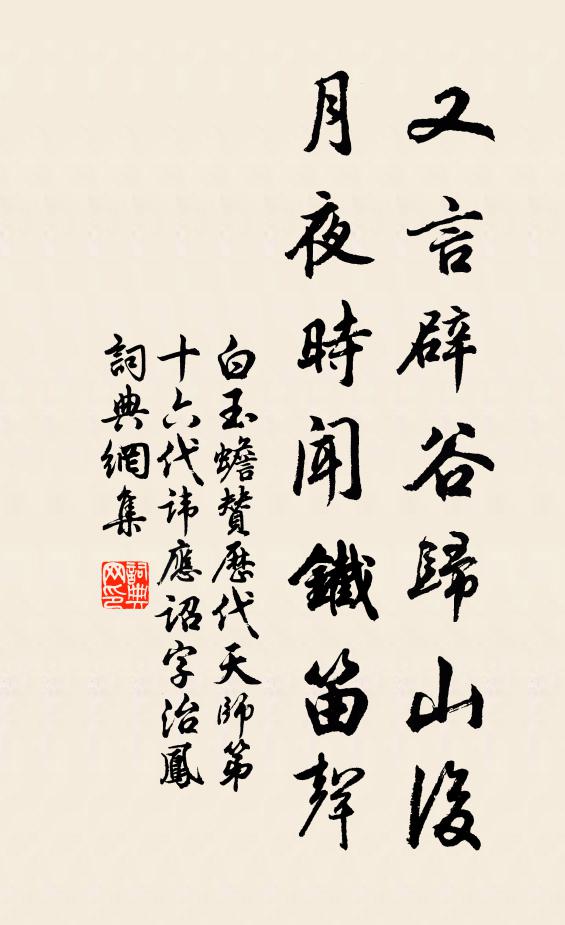 又言辟谷歸山後
月夜時聞鐵笛聲
白玉蟾贊歷代天師第
十六代諱應詔字治鳳
詞典網集
詞典網印